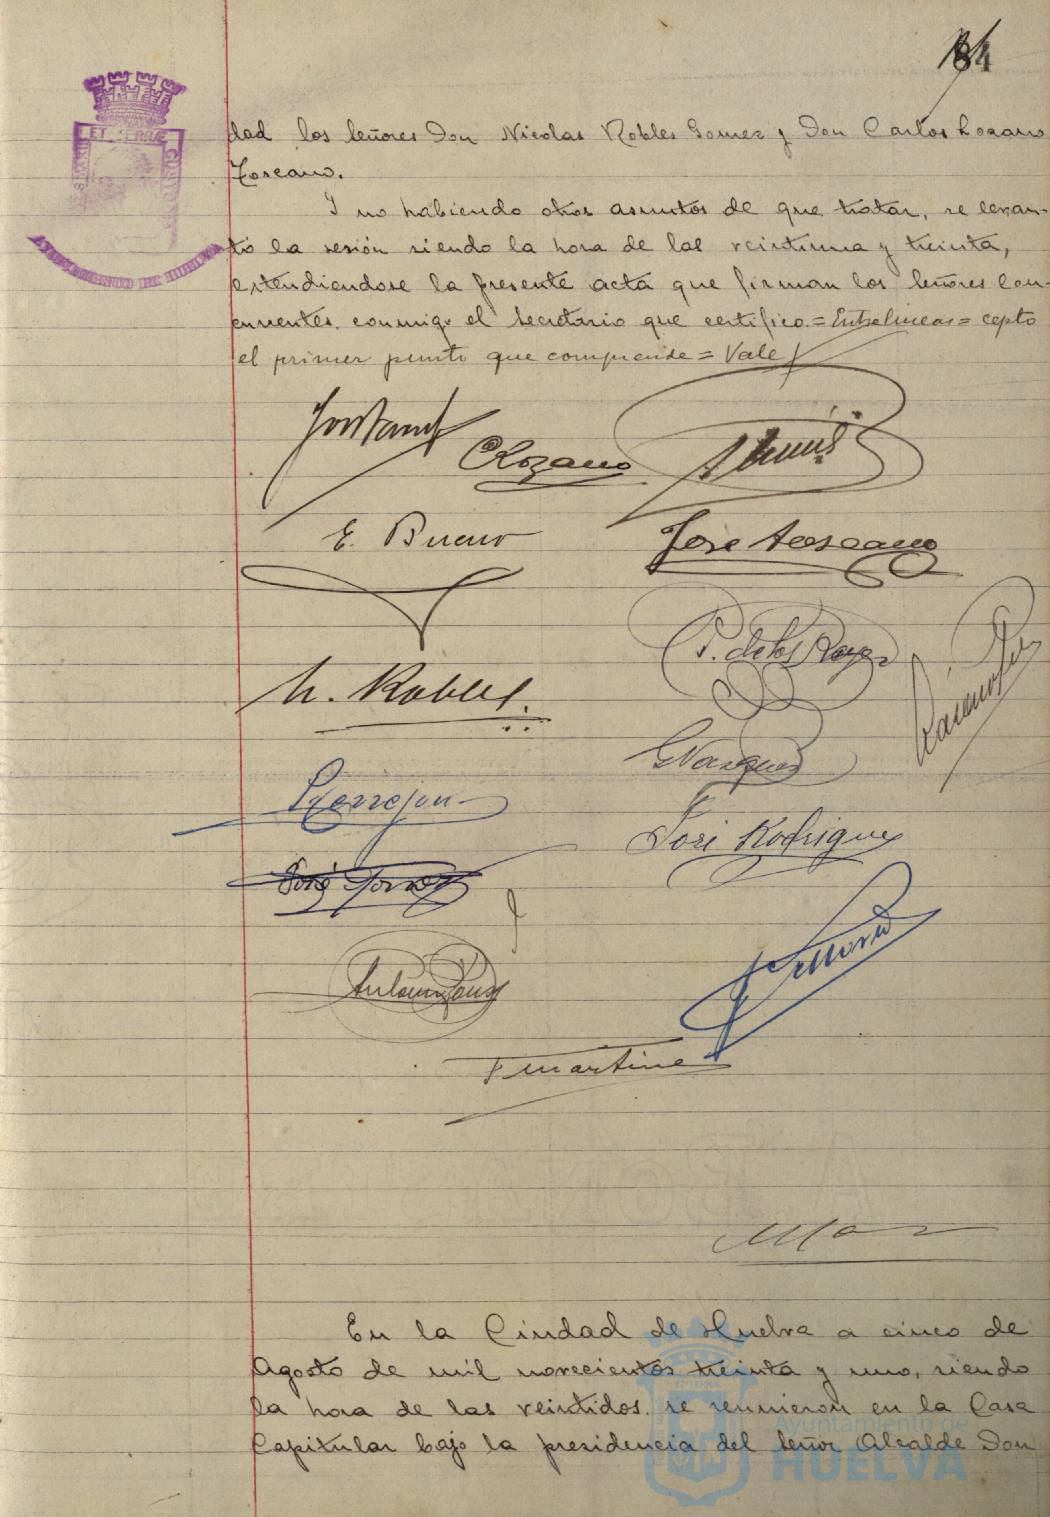 84
dad los señores Don Nicolas Robles Gomez y Don Carlos Lozano
Toscano.
Y no habiendo otros asuntos de que tratar, se levan-
tó la sesión siendo la hora de las veintiuna y treinta,
extendiendose la presente acta que firman los señores con-
currentes conmigo el Secretario que certifico.=Entrelineas=cepto
el primer punto que comprende=Vale
ET TERRAE
CLozano
E. Bueno
José Toscano
P. de los Reyes
N. Robles
GVazquez
Terrejon
José Rodriguez
José Torres
F Martine
En la Ciudad de Huelva a cinco de
Agosto de mil novecientos treinta y uno, siendo
la hora de las veintidos. se reunieron en la Casa
Capitular bajo la presidencia del Señor Alcalde Don
Ayuntamiento de
HUELVA